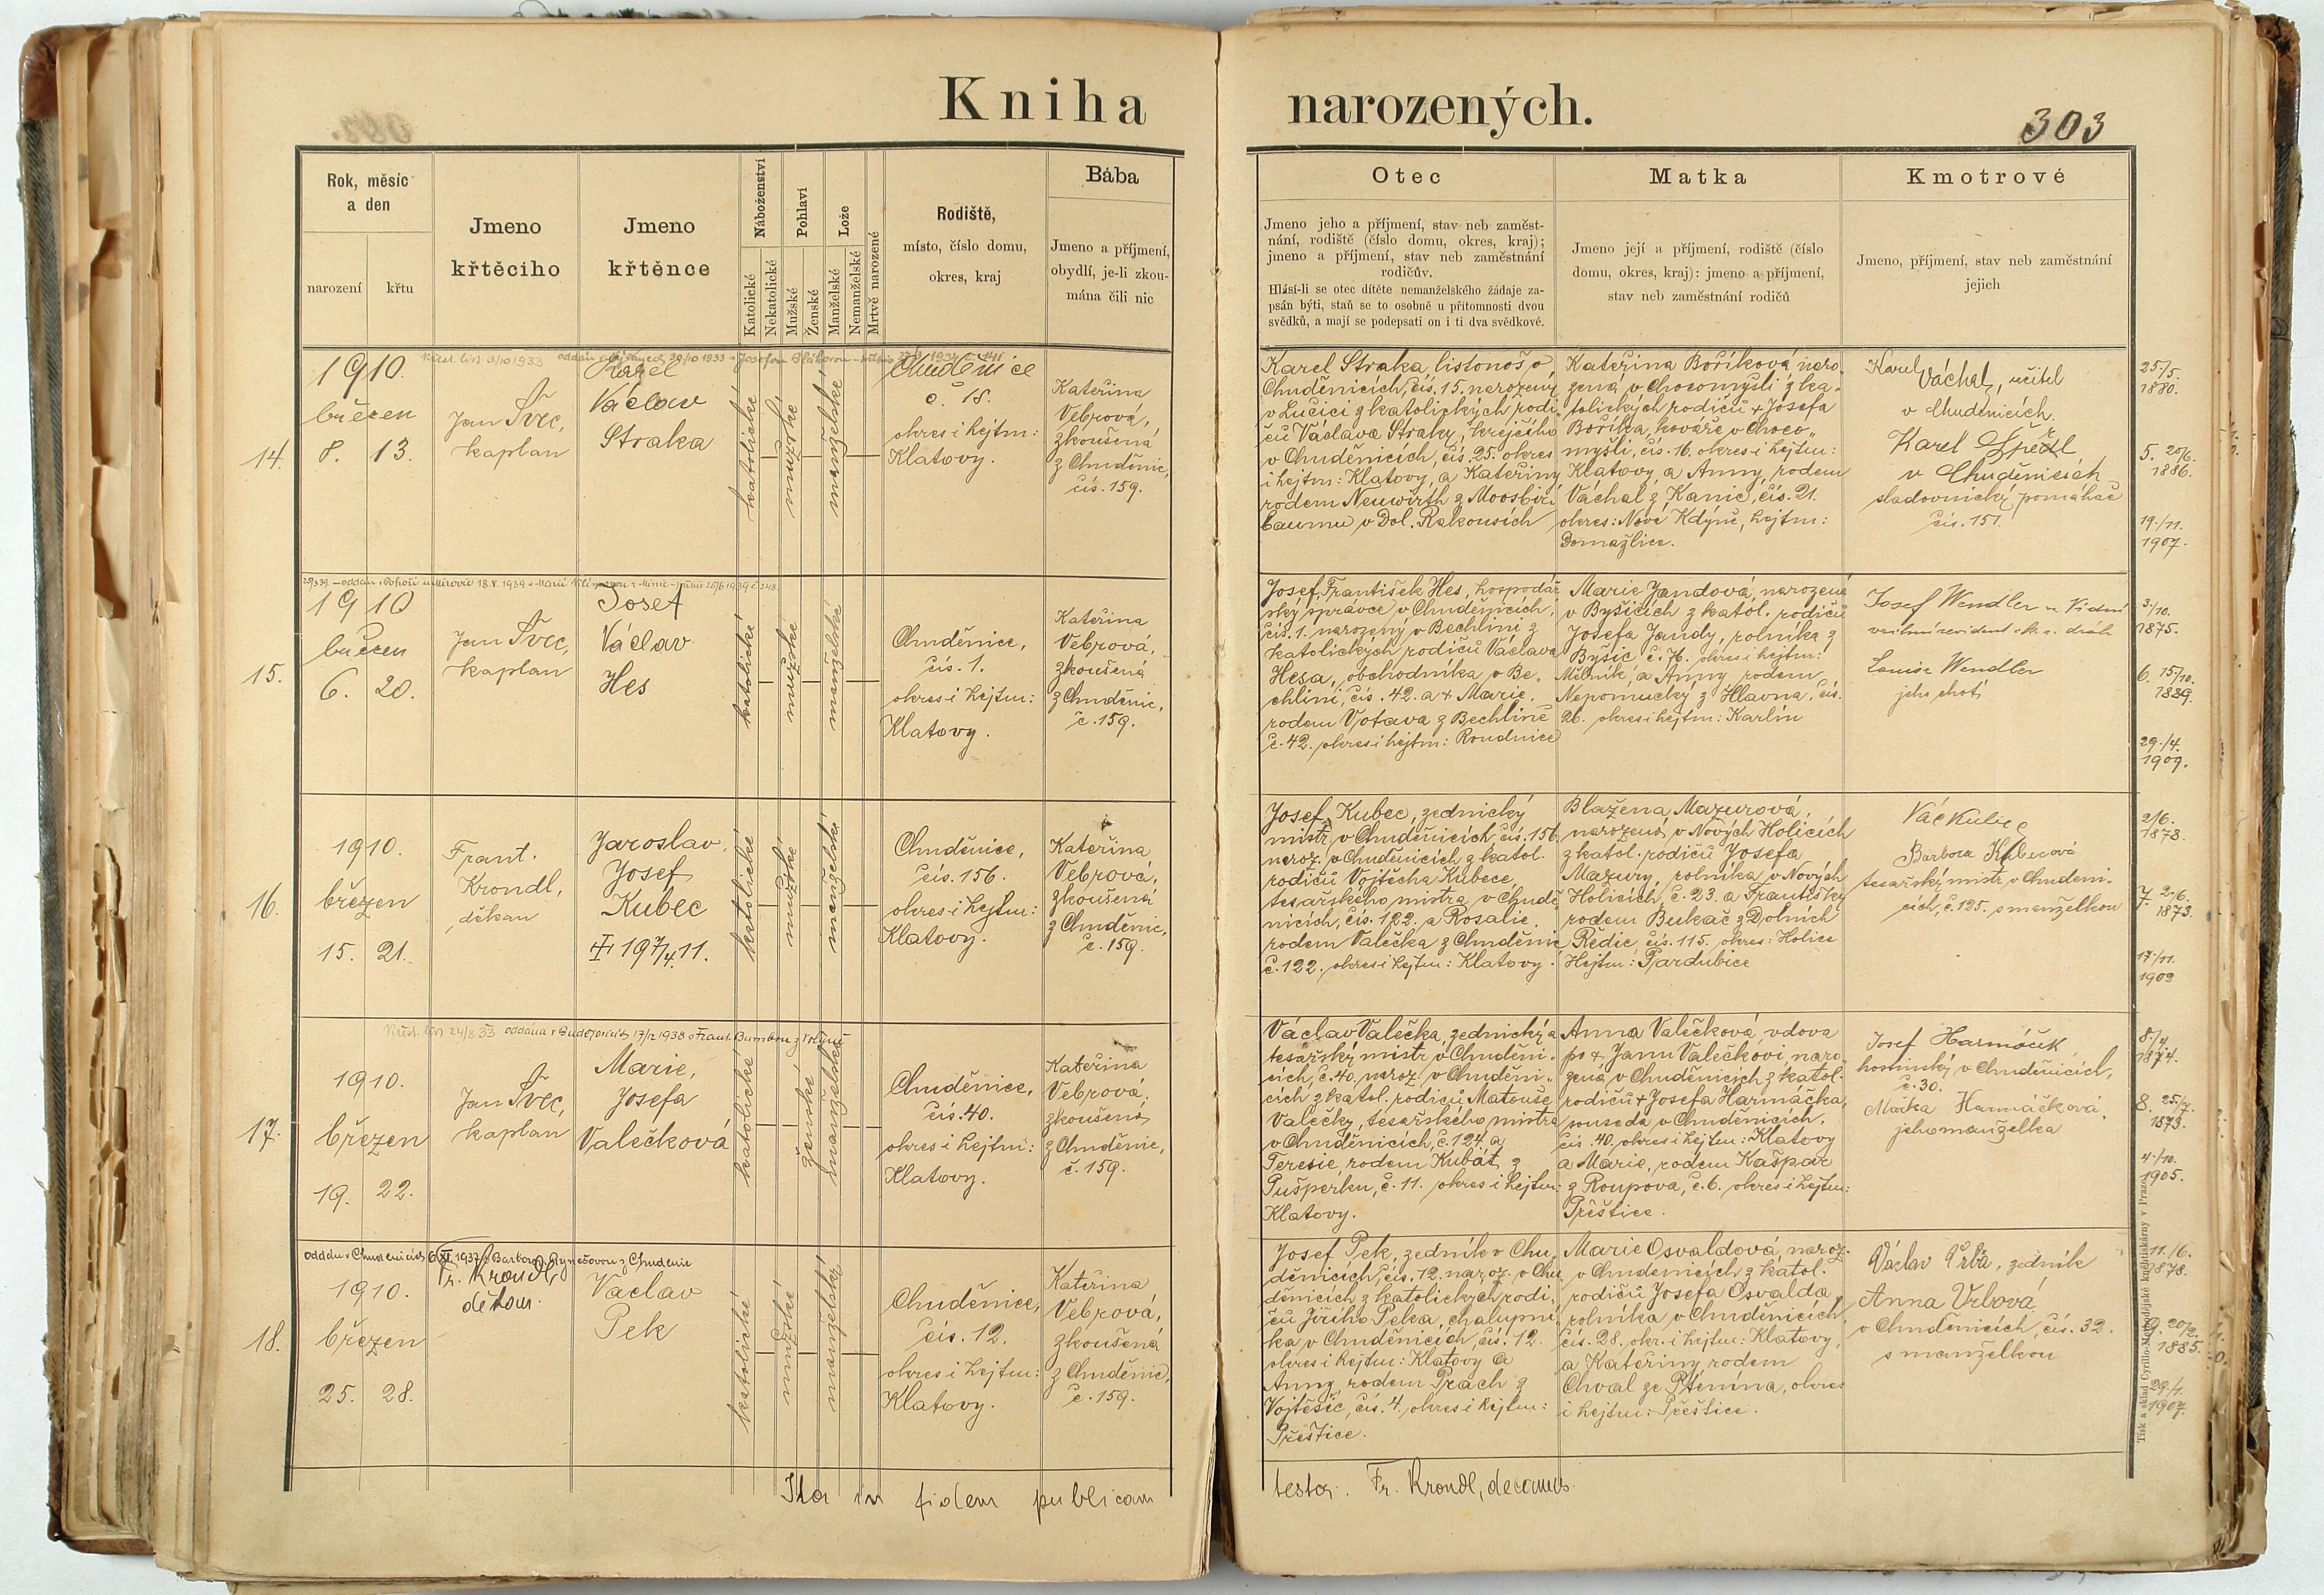 Kniha narozených.
303
Rok, měsíc
a den
narození
křtu
Jmeno
křtěcího
Jmeno
křtěnce
Náboženství
Katolické
Nekatolické
Pohlaví
Mužské
Ženské
Lože
Manželské
Nemanželské
Mrtvě narozené
Rodiště,
místo, číslo domu,
okres, kraj
Bába
Jmeno a příjmení,
obydlí, je-li zkou-
mána čili nic
Otec
Jmeno jeho a příjmení, stav neb zaměst-
nání, rodiště (číslo domu, okres, kraj);
jmeno a příjmení, stav neb zaměstnání
rodičův.
Hlásí-li se otec dítěte nemanželského žádaje za-
psán býti, staň se to osobně u přítomnosti dvou
svědků, a mají se podepsati on i ti dva svědkové.
Matka
Jmeno její a příjmení, rodiště (číslo
domu, okres, kraj): jmeno a příjmení,
stav neb zaměstnání rodičů
Kmotrové
Jmeno, příjmení, stav neb zaměstnání
jejich
14.
křest. list 3/10 1933
1910.
březen
8. 13.
Jan Švec,
kaplan
Karel
Václav
Straka
katolické
mužské
manželské
Chuděnice
č. 15.
okres i hejtm:
Klatovy.
Kateřina
Vebrová,
zkoušená
z Chuděnic,
čís. 159.
Karel Straka, listonoš v
Chuděnicích, čís. 15, narozený
v Lučici z katolických rodi-
čů Václava Straky, krejčího
v Chuděnicích, čís. 25. okres
i hejtm: Klatovy, a Kateřiny,
rodem Neuwirth z Moosbir-
baumu v Dol. Rakousích
Kateřina Boříková, naro-
zená v Chocomyšli z ka-
tolických rodičů + Josefa
Boříka, kováře v Choco-
myšli, čís. 16. okres i hejtm:
Klatovy, a Anny, rodem
Váchal z Kanic, čís. 21.
okres: Nové Kdýně, hejtm:
Domažlice.
Karel
Váchal, učitel
v Chuděnicích.
Karel
v Chuděnicích
sladovnický pomáhač
čís. 151.
25/5.
1880.
5. 20/6.
1886.
19./11.
1907.
15.
1910
březen
6. 20.
Jan Švec,
kaplan
Josef
Václav
Hes
katolické
mužské
manželské
Chuděnice,
čís. 1.
okres i hejtm:
Klatovy.
Kateřina
Vebrová,
zkoušená
z Chuděnic,
č. 159.
Josef František Hes, hospodář-
ský správce v Chuděnicích,
čís. 1. narozený v Bechlíni z
katolických rodičů Václava
Hesa, obchodníka v Be-
chlíni, čís. 42. a + Marie,
rodem Votava z Bechlíně
č. 42. okres i hejtm: Roudnice
Marie Jandová, narozená
v Byšicích z katol. rodičů
Josefa Jandy, rolníka z
Byšic, č. 76. okres i hejtm:
Mělník, a Anny, rodem
Nepomucký z Hlavna, čís.
26. okres i hejtm: Karlín
Josef Wendler
Louise Wendler
jeho choť
3./10.
1875.
6. 15/10.
1889.
29./4.
1909.
16.
1910.
březen
15. 21.
Frant.
Krondl,
děkan
Jaroslav
Josef
Kubec
katolické
mužské
manželské
Chuděnice,
čís. 156.
okres i hejtm:
Klatovy.
Kateřina
Vebrová,
zkoušená
z Chuděnic,
č. 159.
Josef Kubec, zednický
mistr v Chuděnicích, čís. 156.
naroz. v Chuděnicích z katol.
rodičů Vojtěcha Kubece,
tesařského mistra v Chudě-
nicích, čís. 122. a Rosalie,
rodem Valečka z Chuděnic
č. 122. okres i hejtm: Klatovy.
Blažena Mazurová,
narozená v Nových Holicích
z katol. rodičů Josefa
Mazury, rolníka v Nových
Holicích, č. 23. a Františky
rodem Bukač z Dolních
Ředic, čís. 115. okres: Holice
Hejtm: Pardubice
Vác Kubec
Barbora Kubecová
tesařský mistr v Chuděni-
cích, č. 125. s manželkou
2/6.
1873.
7. 2./6.
1873.
17/11.
17.
1910.
březen
19. 22.
Jan Švec,
kaplan
Marie,
Josefa
Valečková
katolické
ženské
manželské
Chuděnice,
čís. 40.
okres i hejtm:
Klatovy.
Kateřina
Vebrová,
zkoušená
z Chuděnic,
č. 159.
Václav Valečka, zednický a
tesařský mistr v Chuděni-
cích, č. 40, naroz. v Chuděni-
cích z katol. rodičů Matouše
Valečky, tesařského mistra
v Chuděnicích, č. 124. a
Teresie, rodem Kubát z
Pušperku, č. 11. okres i hejtm:
Klatovy.
Anna Valečková, vdova
po + Janu Valečkovi, naro-
zená v Chuděnicích z katol.
rodičů + Josefa Harmáčka,
souseda v Chuděnicích,
čís. 40. okres i hejtm: Klatovy
a Marie, rodem Kašpar
z Roupova, č. 6. okres i hejtm:
Přeštice.
Josef Harmáček
hostinský v Chuděnicích,
č. 30.
Harmáčková,
jeho manželka
8./4.
1874.
8. 25/7.
1873.
4./10.
1905.
18.
1910.
březen
25. 28.
Fr. Krondl,
děkan.
Václav
Pek
katolické
mužské
manželské
Chuděnice,
čís. 12.
okres i hejtm:
Klatovy.
Kateřina
Vebrová,
zkoušená
z Chuděnic,
č. 159.
Josef Pek, zedník v Chu-
děnicích, čís. 12. naroz. v Chu-
děnicích z katolických rodi-
čů Jiřího Peka, chalupní-
ka v Chuděnicích, čís. 12.
okres i hejtm: Klatovy a
Anny, rodem Prach z
Vojtěšic, čís. 4. okres i hejtm:
Přeštice.
Marie Osvaldová, naroz.
v Chuděnicích z katol.
rodičů Josefa Osvalda,
rolníka v Chuděnicích,
čís. 28. okr. i hejtm: Klatovy,
a Kateřiny, rodem
Chval ze Ptenína, okres
i hejtm: Přeštice.
Václav Vrba, zedník
Anna Vrbová
v Chuděnicích, čís. 32.
s manželkou
11./6.
1878.
9. 20/2.
1885.
29./1.
1907.
Ita in fidem publicam
testor. Fr. Krondl, decanus.
Tisk a sklad Cyrillo-Methodějské knihtiskárny v Praze.